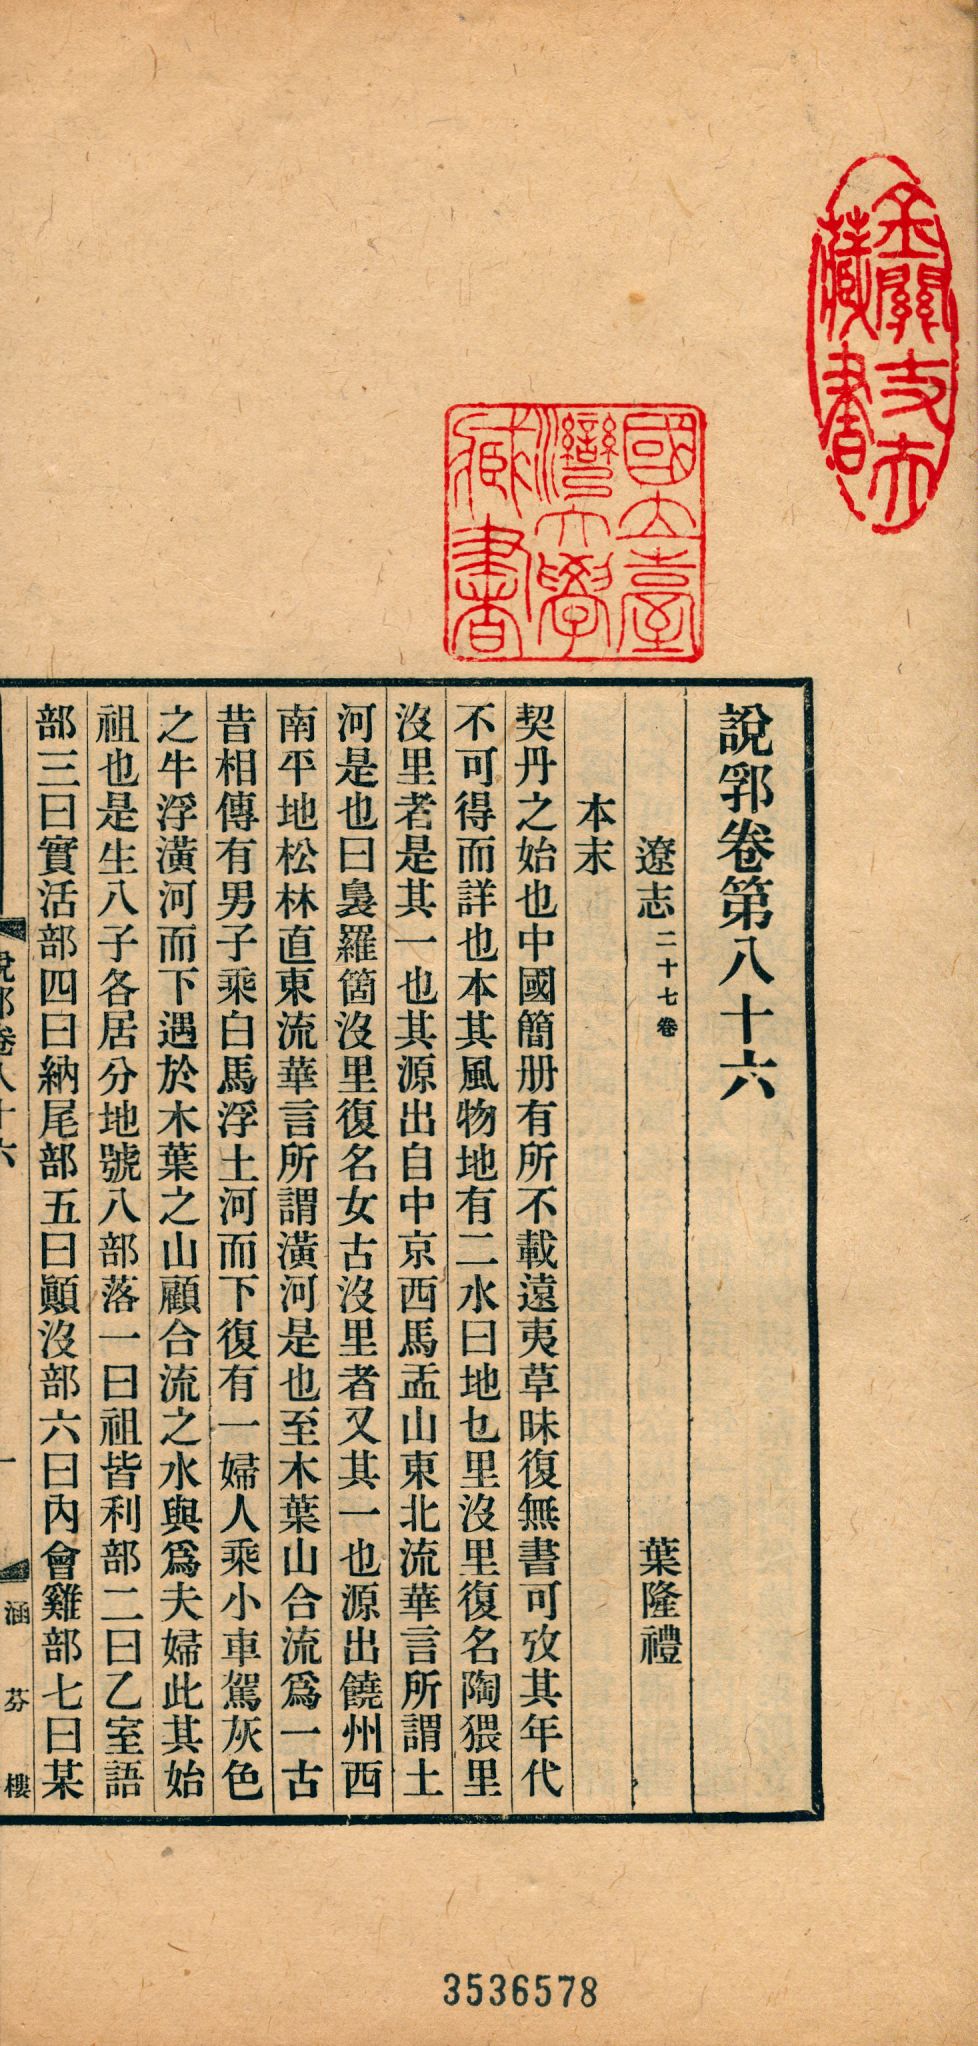 說郛卷第八十六
遼志二十七卷 葉隆禮
本末
契丹之始也中國簡册有所不載遠夷草昧復無書可攷其年代
不可得而詳也本其風物地有二水曰地乜里沒里復名陶猥里
沒里者是其一也其源出自中京西馬盂山東北流華言所謂土
河是也曰裊羅箇沒里復名女古沒里者又其一也源出饒州西
南平地松林直東流華言所謂潢河是也至木葉山合流爲一古
昔相傳有男子乘白馬浮土河而下復有一婦人乘小車駕灰色
之牛浮潢河而下遇於木葉之山顧合流之水與爲夫婦此其始
祖也是生八子各居分地號八部落一曰祖皆利部二曰乙室語
部三曰實活部四曰納尾部五曰顚沒部六曰內會雞部七曰某
說郛卷八十六 一 涵芬樓
國立臺
灣大學
藏書
藏書
3536578